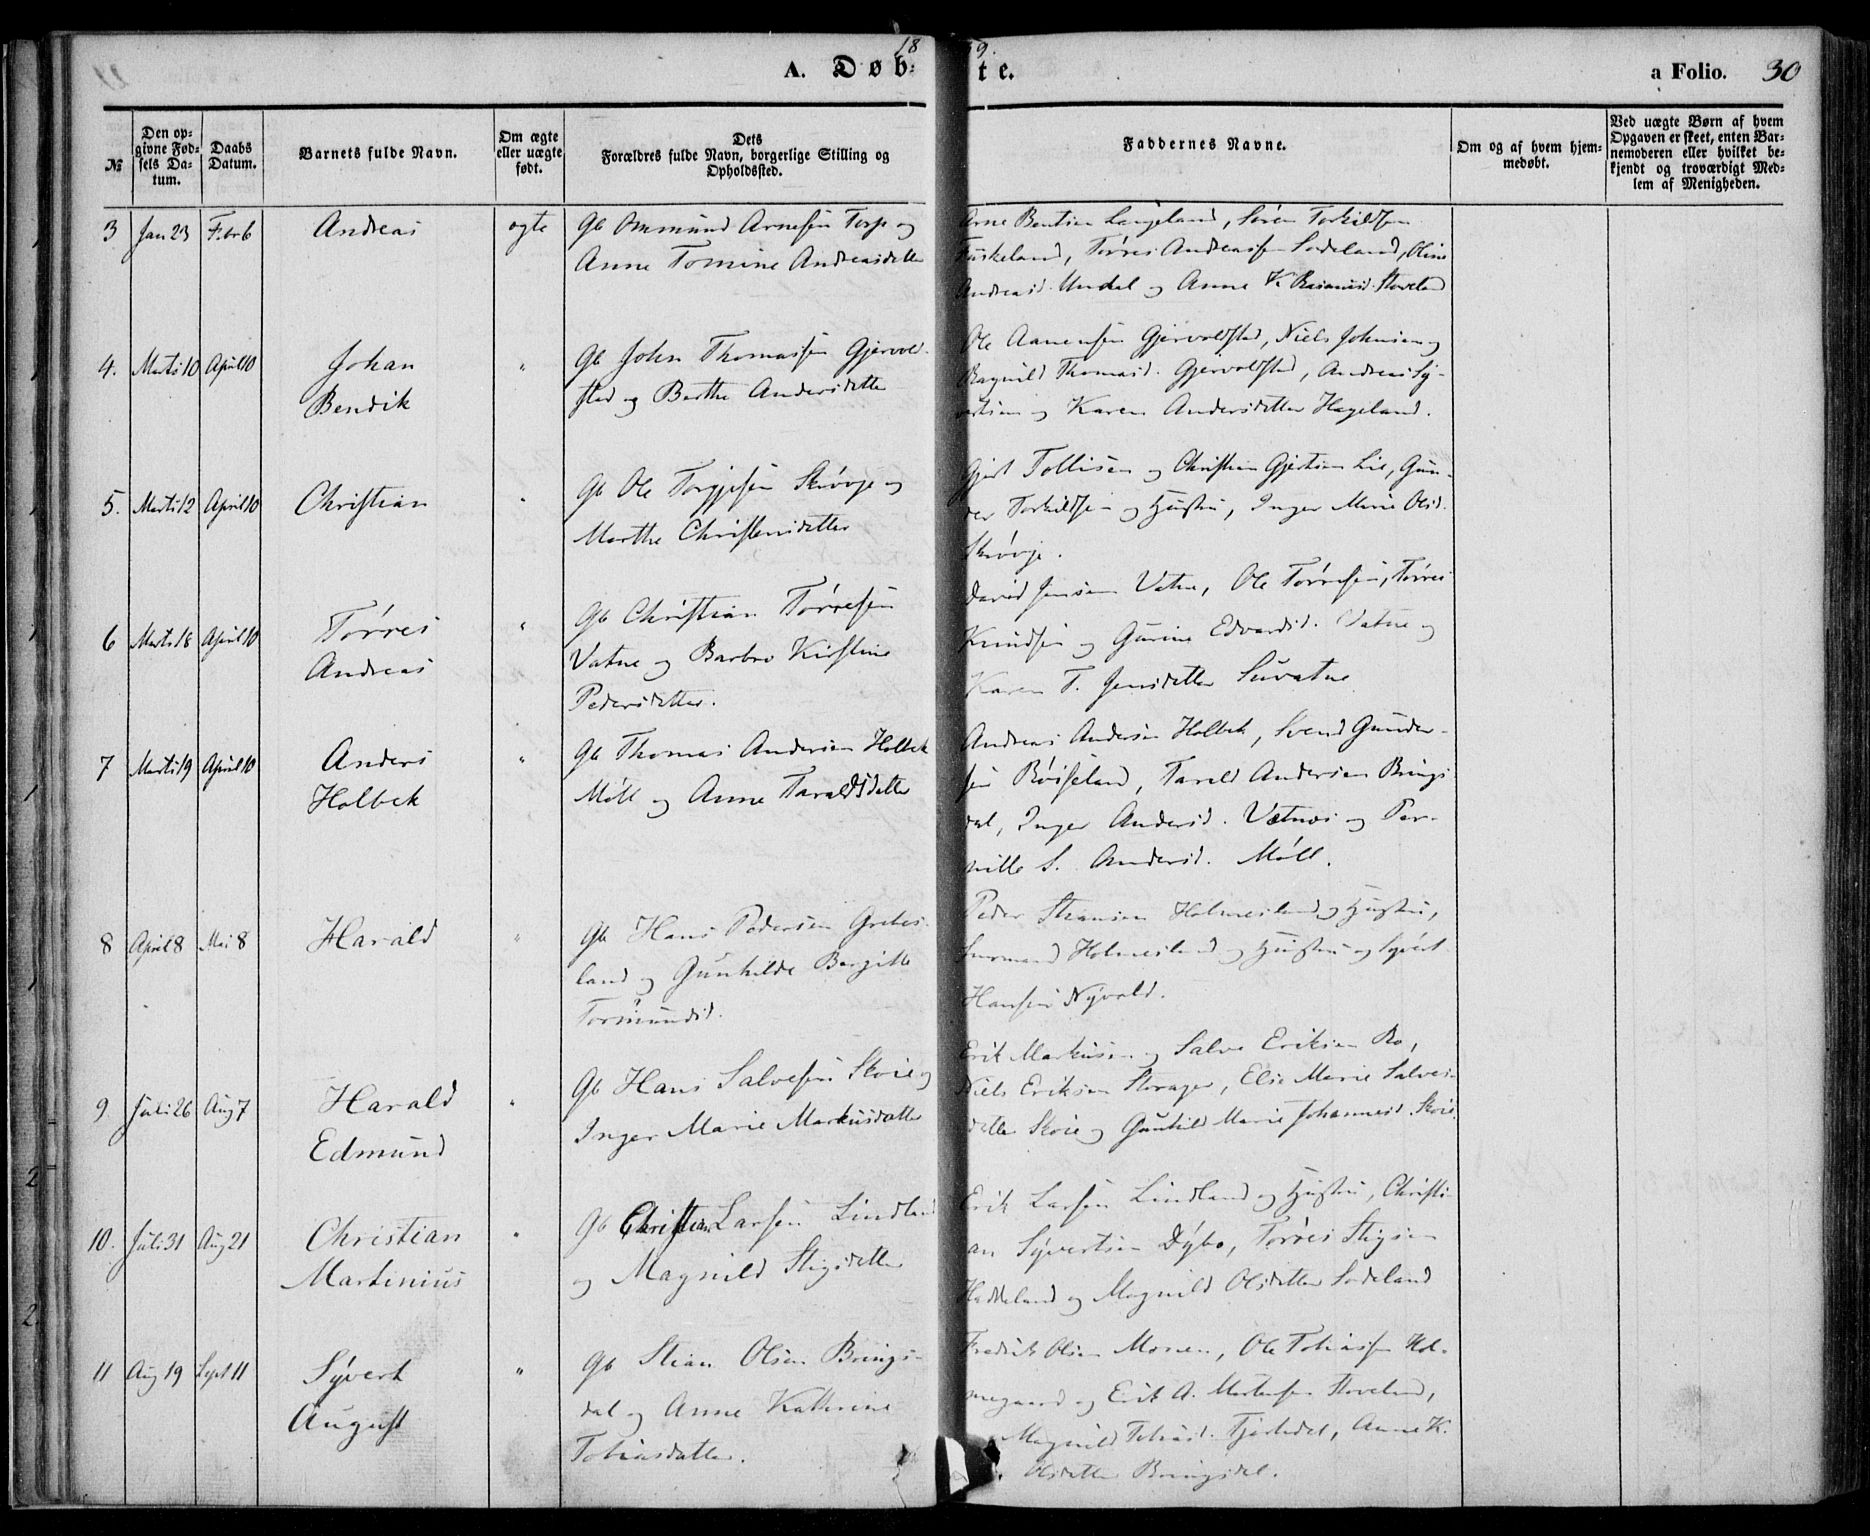 18 59.
A. Døb- te. a Folio. 30
№
Den op-
givne Fød-
sels Da-
tum.
Daabs
Datum.
Barnets fulde Navn.
Om ægte
eller uægte
født.
Dets
Forældres fulde Navn, borgerlige Stilling og
Opholdssted.
Faddernes Navne.
Om og af hvem hjem-
medøbt.
Ved uægte Børn af hvem
Opgaven er skeet, enten Bar-
nemoderen eller hvilket be-
kjendt og troværdigt Med-
lem af Menigheden.
3 Jan 23 Febr 6 Andreas ægte Gb Ommund Arnesen Torp og
Anne Tomine Andreasdatter
Arne Bentsen Langeland, Søren Torkildsen
Fuskeland, Tørres Andreassen Sodeland, Oline
Andreasd. Undal og Anne K. Rasmusd. Stoveland
4. Marts 10 April 10 Johan
Bendik
" Gb John Thomassen Gjervold-
stad og Berthe Andersdatter
Ole Aanensen Gjervoldstad, Niels Johnsen og
Ragnild Thomasd. Gjervoldstad, Andreas Sy-
vertsen og Karen Andersdatter Hageland.
5. Marts 12 April 10 Christian " Gb Ole Torgjesen Skøvje og
Marthe Christensdatter
Gjert Tollisen og Christian Gjertsen Lie, Gun-
der Torkildsen og Hustru, Inger Marie Olsd.
Skøvje.
6 Marts 18 April 10 Tørres
Andreas
" Gb Christian Tørresen
Vatne og Barbro Kirstine
Pedersdatter.
David Jensen Vatne, Ole Tørresen, Tørres
Knudsen og Gurine Edvardsd. Vatne og
Karen T. Jensdatter Suvatne
7 Marts 19 April 10 Anders
Holbek
" Gb Thomas Andersen Holbek
Møll og Anne Taraldsdatter
Andreas Andersen Holbek, Svend Gunder-
sen Røiseland, Tarald Andersen Brings-
dal, Inger Andersd. Vatnes og Per-
nille S. Andersd. Møll.
8 April 8 Mai 8 Harald " Gb Hans Pedersen Grebes-
land og Gunhilde Bergitte
Tormundsd.
Peder Stiansen Holmesland og Hustru,
Holmesland og Hustru og Syvert
Hansen Nyvold.
9 Juli 26 Aug 7 Harald
Edmund
" Gb Hans Salvesen Skoie og
Inger Marie Markusdatter
Erik Markusen og Salve Eriksen Ro,
Niels Eriksen Storager, Else Marie Salves-
datter Skoie og Gunhild Marie Johannesd. Skoie.
10. Juli 31 Aug 21 Christian
Martinius
" Gb Christen Larsen Lindland
og Magnild Stigsdatter
Erik Larsen Lindland og Hustru, Christi-
an Syvertsen Dybo, Tørres Stigsen
Haddeland og Magnild Olsdatter Sodeland
11 Aug 19 Sept 11 Syvert
August
" Gb Stian Olsen Brings-
dal og Anne Kathrine
Tobiasdatter.
Fredrik Olsen Monen, Ole Tobiassen Hol-
megaard og Erik A. Mortensen Stoveland,
Magnild Tobiasd. , Anne K.
Olsdatter Bringsdal.